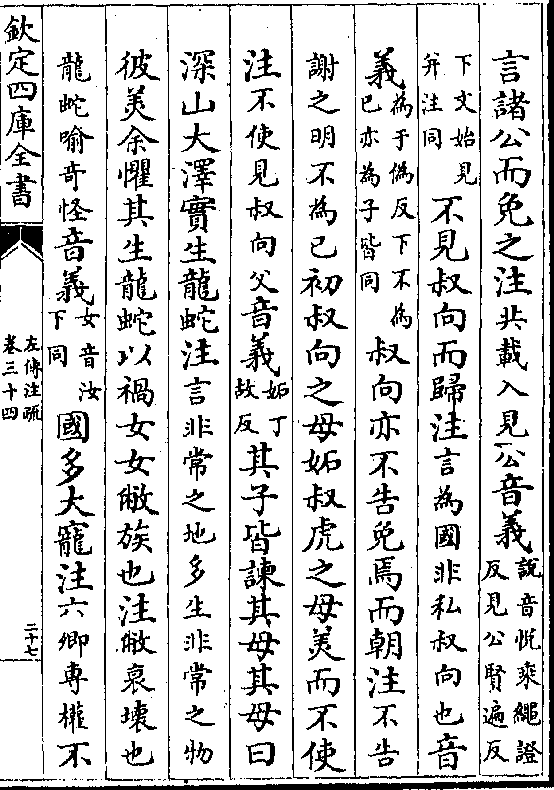 言諸公而免之注共載入見公音義說音悅乘繩證反見公賢遍反
下文始見并注同不見叔向而歸注言為國非私叔向也音
義為于偽反下不為已亦為子皆同叔向亦不告免焉而朝注不告
謝之明不為已初叔向之母妬叔虎之母美而不使
注不使見叔向父音義妬丁故反其子皆諫其母其母曰
深山大澤實生龍蛇注言非常之地多生非常之物
彼美余懼其生龍蛇以禍女女敝族也注敝衰壞也
龍蛇喻奇怪音義女音汝下同國多大寵注六卿專權不
欽定四庫全書
左傳注疏
卷三十四
二十七